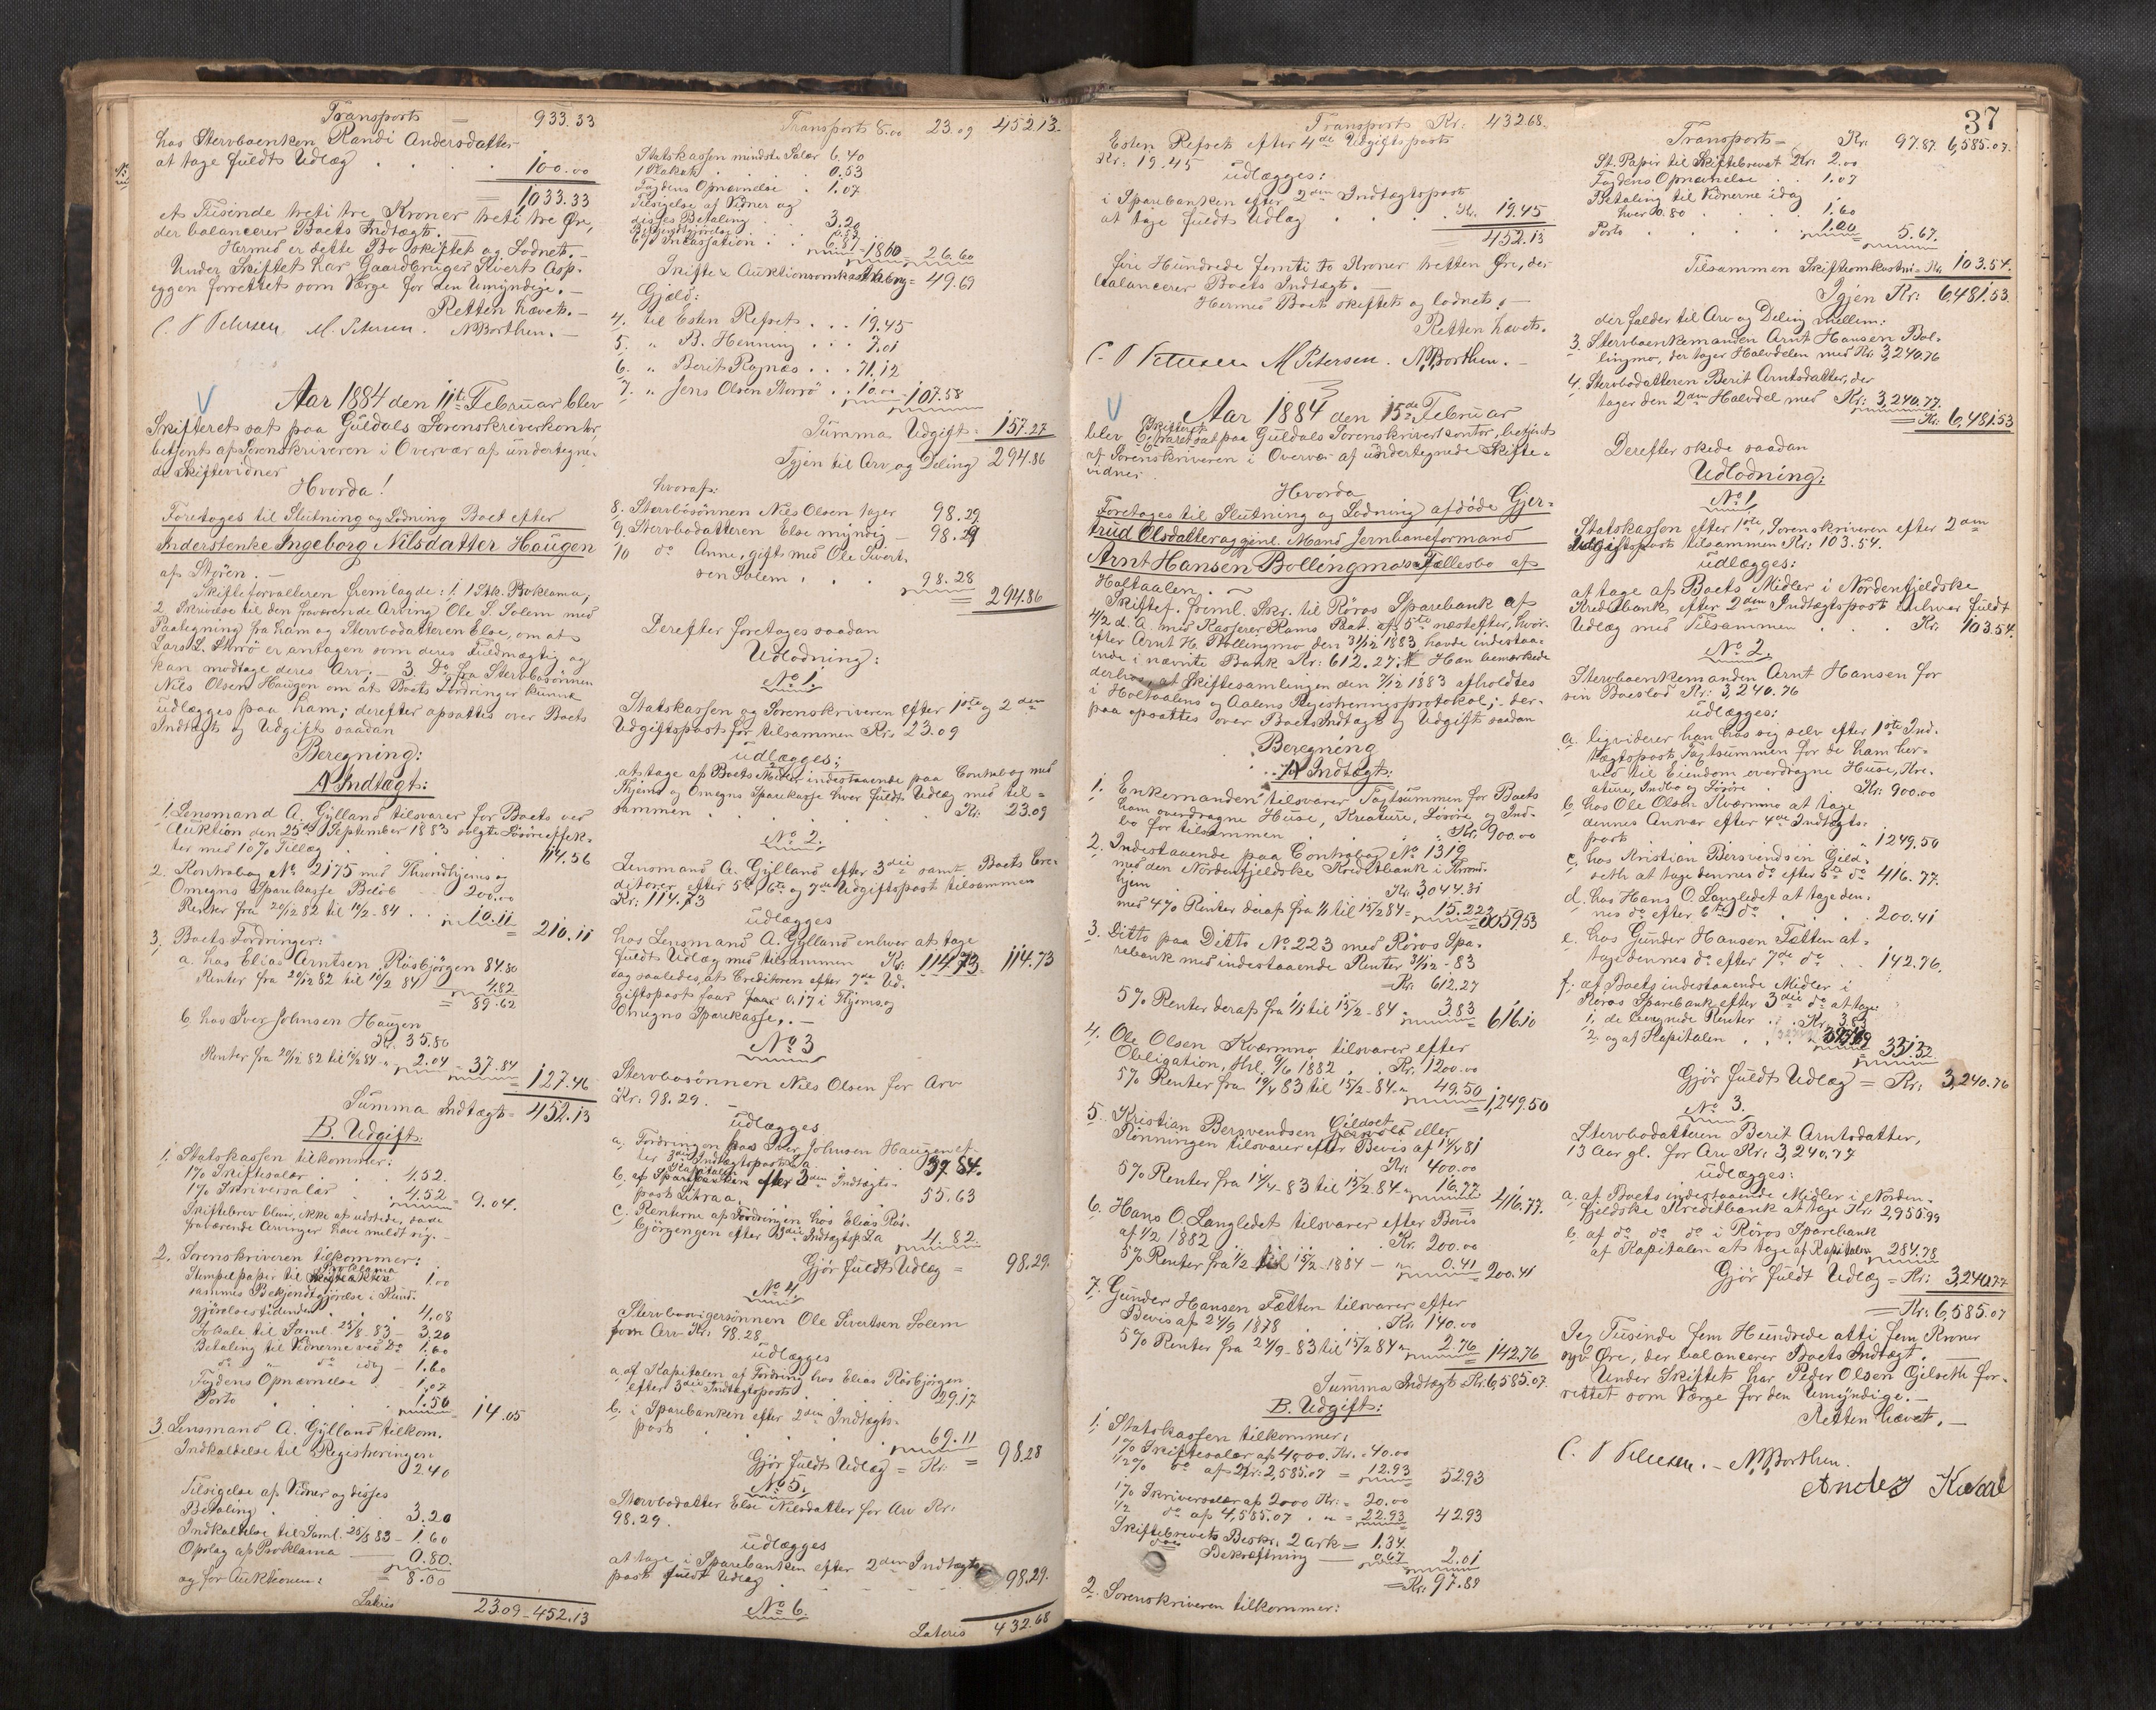 Transport = 933.33
hos Stervboenken Randi Andersdatter
at tage fuldt Udlæg . . . 100.00
1033.33
et Tusinde tretti tre Kroner tretti tre Øre,
der balancerer Boets Indtægt. —
Hermed er dette Bo skiftet og lodnet. —
Under Skiftet har Gaardbruger Sivert Asp-
eggen forrettet som Værge for den Umyndige. —
Retten hævet. —
C. V Petersen. M. Petersen. N. Borthen. —
Aar 1884 den 11te Februar blev
Skifteret sat paa Guldals Sorenskriverkontor,
betjent af Sorenskriveren i Overvær af undertegne-
de Skiftevidner
Hvorda!
Foretoges til Slutning og Lodning Boet efter
Inderstenke Ingeborg Nilsdatter Haugen
af Støren. —
Skifteforvalteren fremlagde: 1. 1 Stk. Proklama;
2 Skrivelse til den fraværende Arving Ole S. Solem med
Paategning fra ham og Stervbodatteren Else, om at
Lars L. Storrø er antagen som deres Fuldmægtig og
kan modtage deres Arv; — 3. Do fra Stervbosønnen
Nils Olsen Haugen om at Boets Fordringer kunne
udlægges paa ham; derefter opsattes over Boets
Indtægt og Udgift saadan
Beregning:
A Indtægt:
1. Lensmand A. Gylland tilsvarer for Boets ved
Auktion den 25de September 1883 solgte Løsøreeffek-
ter med 10% Tillæg . . . 114.56
2. Kontrabog No 2175 med Throndhjems og
Omegns Sparekasse Beløb — 200.00
Renter fra 20/12 82 til 11/2 - 84 . . 10.11 = 210.11
3. Boets Fordringer:
a. hos Elias Arntsen Røsbjørgen 84.80
Renter fra 20/12 82 til 11/2 84 4.82
= 89.62
b. hos Iver Johnsen Haugen
Kr. 35.80
Renter fra 20/12 82 til 11/2 84 „ 2.04 = 37.84 = 127.46
Summa Indtægt = 452.13
B. Udgift:
1. Statskassen tilkommer:
1% Skiftesalær . . 4.52.
1% Skriversalær . . 4.52 = 9.04.
Skiftebrev bliver ikke at udstede, da de
fraværende Arvinger have meldt sig. —
2. Sorenskriveren tilkommer:
Stempelpapir til Proklama 1.00
sammes Bekjendtgjørelse i Kund-
gjørelsestidenden . . 4.08
Lokale til Saml. 25/8 83 — 3.20
Betaling til Vidnerne ved Do 1.60
do „ do idag — 1.60
Fogdens Opnævnelse . 1.07
Porto . . . 1.50 = 14.05
3. Lensmand A. Gylland tilkom.
Indkaldelse til Registreringen
2.40
Tilsigelse af Vidner og disses
Betaling . . . 3.20
Indkaldelse til Saml. 25/8 83 — 1.60
Opslag af Proklama — 0.80.
og for Auktionen: = 8.00
Lateris 23.09 — 452.13
Transport 8.00 23.09 452.13.
Statskassen mindste Salær 6.40
1 Plakat . . . 0.53
Fogdens Opnævnelse . 1.07
Tilsigelse af Vidner og
disses Betaling . . 3.20
6% Incassation . . 6.87 = 18.60 = 26.60
Skifte & Auktionsomkostning = 49.69
Gjæld:
4. til Esten Refset . . . 19.45
5. „ B. Henning . . . 7.01
6. „ Berit Rognæs . . . 71.12
7. „ Jens Olsen Storrø . . 10.00 = 107.58
Summa Udgift = 157.27
Igjen til Arv og Deling 294.86
hvoraf:
8. Stervbosønnen Nils Olsen tager 98.29
9. Stervbodatteren Else myndig — 98.29
10 do Anne, gift med Ole Sivert-
sen Solem . . . 98.28
= 294.86
Derefter foretages saadan
Udlodning:
No 1.
Statskassen og Sorenskriveren efter 1ste og 2den
Udgiftspost for tilsammen Kr. 23.09
udlægges:
at tage af Boets Midler indestaaende paa Contrabog med
Thjems og Omegns Sparekasse hver fuldt Udlæg med til-
sammen . . . Kr. 23.09
No 2.
Lensmand A. Gylland efter 3die samt Boets Cre-
ditorer efter 5te, 6te og 7de Udgiftspost tilsammen
Kr: 114.73
udlægges
hos Lensmand A. Gylland enhver at tage
fuldt Udlæg med tilsammen Kr. 114.73. 114.73
dog saaledes, at Creditoren efter 7de Ud-
giftspost faar 0.17 i Thjems og
Omegns Sparekasse. —
No 3
Stervbosønnen Nils Olsen for Arv
Kr. 98.29. —
udlægges
a. Fordringen hos Iver Johnsen Haugen ef-
ter 3die Indtægtspost La . 37.84.
b. af Kapitalen efter 3die Indtægts-
post Litra a. . . 55.63
c. Renterne af Fordringen hos Elias Røs-
bjørgengen efter 3die Indtægtsp. La 4.82.
Gjør fuldt Udlæg = 98.29.
No 4.
Stervbosvigersønnen Ole Sivertsen Solem
som Arv Kr: 98.28
udlægges
a. af Kapitalen af Fordring hos Elias Røsbjørgen
efter 3die Indtægtspost . 29.17
b. i Sparebanken efter 2den Indtægts-
post . . . 69.11
Gjør fuldt Udlæg = Kr. = 98.28
No 5.
Stervbodatter Else Nilsdatter for Arv Kr.
98.29.
udlægges
at tage i Sparebanken efter 2den Indtægts-
post fuldt Udlæg - - - - 98.29.
No 6.
Lateris 432.68
Transport Kr: 432.68.
Esten Refset efter 4de Udgiftspost
Kr: 19.45
udlægges:
i Sparebanken efter 2den Indtægtspost
at tage fuldt Udlæg . . . Kr. 19.45
452.13
fire Hundrede femti to Kroner tretten Øre, der
balancerer Boets Indtægt. —
Hermed Boet skiftet og lodnet. —
Retten hævet.
C. V Petersen M Petersen. N. Borthen. —
Aar 1884 den 15de Februar
blev Skifteret sat paa Guldals Sorenskriverkontor, betjent
af Sorenskriveren i Overvær af undertegnede Skifte-
vidner.
Hvorda
Foretoges til Slutning og Lodning afdøde Gjer-
trud Olsdatter og gjenl. Mand Jernbaneformand
Arnt Hansen Bollingmos Fællesbo af
Holtaalen. —
Skiftef. freml. Skr. til Røros Sparebank af
4/2 d. A. med Kasserer Rams Paat. af 5te næstefter, hvor-
efter Arnt H. Bollingmo den 31/12 1883 havde indestaa-
ende i nævnte Bank Kr: 612.27. Han bemærkede
derhos, at Skiftesamlingen den 7/12 1883 afholdtes
i Holtaalens og Aalens Registreringsprotokol; der-
paa opsattes over Boets Indtægt og Udgift saadan
Beregning
A Indtægt:
1. Enkemanden tilsvarer Taxtsummen for Boets
ham overdragne Huse, Kreature, Løsøre og Ind-
bo for tilsammen . . . Kr. 900.00
2. Indestaaende paa Contrabog No 1319
med den Nordenfjeldske Kreditbank i Thrond-
hjem . . Kr. 3,044.31
med 4% Renter deraf fra 1/1 til 15/2 84 = 15.22 = 3,059.53
3. Ditto paa Ditto No 223 med Røros Spa-
rebank med indestaaende Renter 31/12 - 83
Kr. 612.27
5% Renter deraf fra 1/1 til 15/2 - 84 „ 3.83 = 616.10
4. Ole Olsen Kværnmo tilsvarer efter
Obligation, thl. 9/6 1882 . Kr. 1200.00
5% Renter fra 19/4 83 til 15/2 - 84 „ 49.50 = 1,249.50
5. Kristian Bersvendsen Gildset eller
Rønningen tilsvarer efter Bevis af 14/4 81
Kr: 400.00
5% Renter fra 14/4 - 83 til 15/2 - 84 „ 16.77 = 416.77.
6. Hans O. Langledet tilsvarer efter Bevis
af 1/2 1882 . . . Kr. 200.00
5% Renter fra 1/2 til 15/2 - 1884 — „ 0.41 = 200.41
7. Gunder Hansen Tætten tilsvarer efter
Bevis af 24/9 1878 . . Kr. 140.00
5% Renter fra 24/9 - 83 til 15/2 84 „ 2.76 = 142.76
Summa Indtægt = Kr: 6,585.07.
B. Udgift:
1. Statskassen tilkommer:
1% Skiftesalær af 4000 Kr. = 40.00
1/2% do af Kr: 2,585.07 = 12.93 52.93
1% Skriversalær af 2000 Kr. = 20.00
1/2 do af 4,585.07 . „ = 22.93 42.93
Skiftebrevets Beskr. 2 ark = 1.34.
Bekræftning — 0.67 2.01
= Kr: 97.87
2. Sorenskriveren tilkommer:
37
Transport = Kr. 97.87. 6,585.07.
St. Papir til Skiftebrevet Kr: 2.00
Fogdens Opnævnelse . . 1.07
Betaling til Vidnerne idag
hver 0.80 . . . 1.60
Porto . . . 1.00 = 5.67.
Tilsammen Skifteomkostn. = Kr. 103.54.
Igjen Kr: 6,481.53.
der falder til Arv og Deling mellem:
3. Stervboenkemanden Arnt Hansen Bol-
lingmo, der tager Halvdelen med Kr. 3,240.76
4. Stervbodatteren Berit Arntsdatter, der
tager den 2den Halvdel med Kr: 3,240.77.
= Kr: 6,481.53
Derefter skede saadan
Udlodning:
No 1.
Statskassen efter 1ste, Sorenskriveren efter 2den
Udgiftspost tilsammen Kr: 103.54.
udlægges:
at tage af Boets Midler i Nordenfjeldske
Kreditbank efter 2den Indtægtspost enhver fuldt
Udlæg med Tilsammen . . Kr. 103.54.
No 2.
Stervboenkemanden Arnt Hansen for
sin Boeslod Kr: 3,240.76
udlægges:
a. ligviderer han hos sig selv efter 1ste Ind-
tægtspost, Taxtsummen for de ham her-
ved til Eiendom overdragne Huse, Kre-
ature, Indbo og Løsøre . Kr. 900.00
b. hos Ole Olsen Kværnmo at tage
dennes Ansvar efter 4de Indtægts-
post . . . „ 1249.50
c. hos Kristian Bersvendsen Gild-
seth at tage dennes do efter 5te do 416.77.
d. hos Hans O. Langledet at tage den-
nes do efter 6te do . . . 200.41
e. hos Gunder Hansen Tætten at
tage dennes do efter 7de do . . 142.76.
f. af Boets indestaaende Midler i
Røros Sparebank efter 3die do at tage
1. de beregnede Renter . . Kr. 3.83
2. og af Kapitalen . . = 331.32.
Gjør fuldt Udlæg = Kr: 3,240.76
No 3.
Stervbodatteren Berit Arntsdatter,
13 Aar gl. for Arv Kr: 3,240.77
udlægges:
a. af Boets indestaaende Midler i Norden-
fjeldske Kreditbank at tage Kr. 2,955.99
b. af do do do i Røros Sparebank
af Kapitalen at tage af Kapitalen 284.78
Gjør fuldt Udlæg = Kr: 3,240.77
= Kr: 6,585.07
Sex Tusinde fem Hundrede otti fem Kroner
syv Øre, der balancerer Boets Indtægt. —
Under Skiftet har Peder Olsen Gilseth for-
rettet som Værge for den Umyndige. —
Retten hævet. —
C. V Petersen. — N. Borthen.
Anders Kvaal